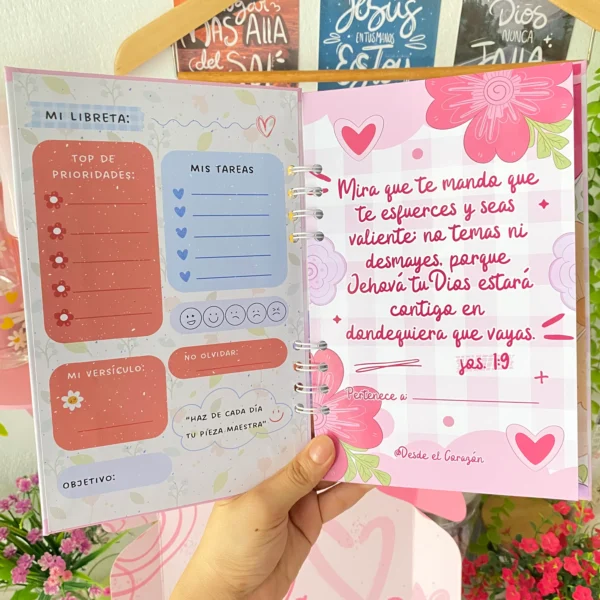 MÁS ALLÁ
del SOL
Jesús
EN TUS MANOS
Estoy
Dios
NUNCA
FALLA
MI LIBRETA:
TOP DE
PRIORIDADES:
MIS TAREAS
NO OLVIDAR:
MI VERSÍCULO:
"HAZ DE CADA DÍA
TU PIEZA MAESTRA"
OBJETIVO:
Mira que te mando que
te esfuerces y seas
valiente; no temas ni
desmayes, porque
Jehová tu Dios estará
contigo en
dondequiera que vayas.
jos. 1:9
Pertenece a
@Desde el Corazón